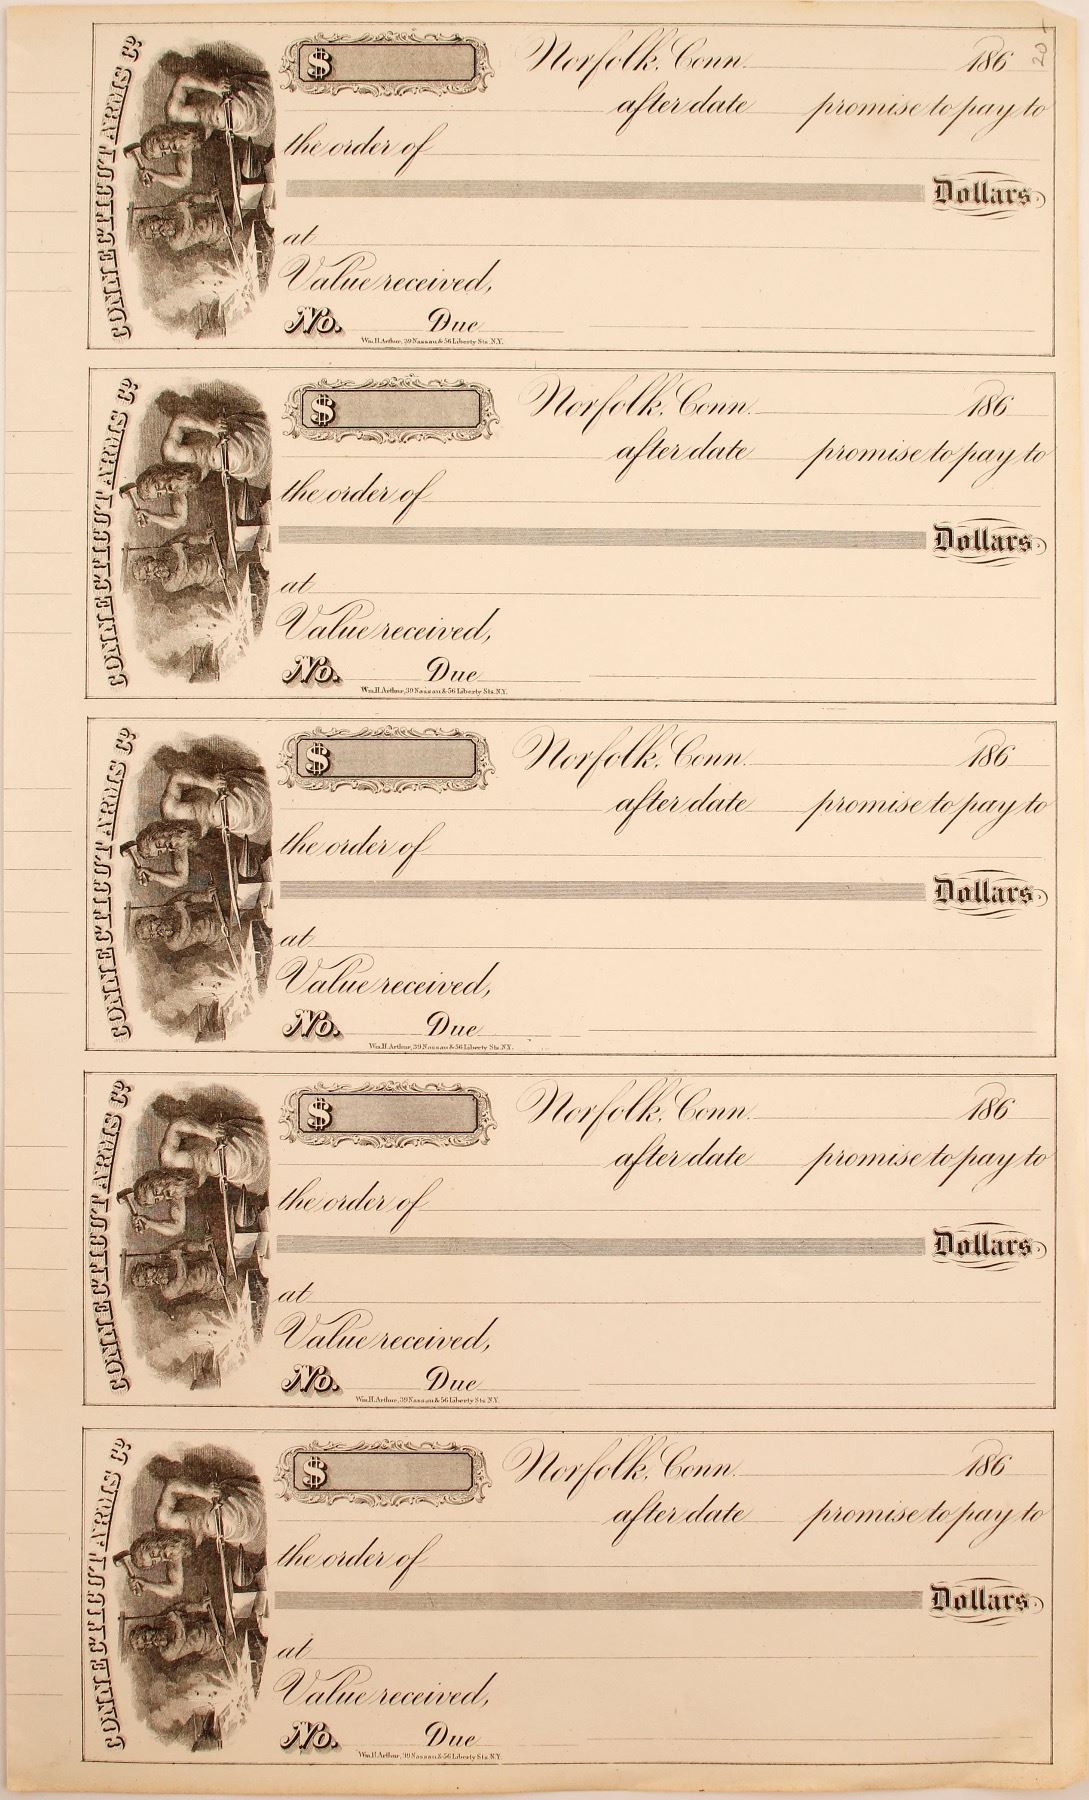 20-
CONNECTICUT ARMS Co
$ Norfolk, Conn. 186
after date promise to pay to
the order of
Dollars
at
Value received,
No. Due
Wm. H. Arthur, 39 Nassau & 56 Liberty Sts. N.Y.
CONNECTICUT ARMS Co
$ Norfolk, Conn. 186
after date promise to pay to
the order of
Dollars
at
Value received,
No. Due
Wm. H. Arthur, 39 Nassau & 56 Liberty Sts. N.Y.
CONNECTICUT ARMS Co
$ Norfolk, Conn. 186
after date promise to pay to
the order of
Dollars
at
Value received,
No. Due
Wm. H. Arthur, 39 Nassau & 56 Liberty Sts. N.Y.
CONNECTICUT ARMS Co
$ Norfolk, Conn. 186
after date promise to pay to
the order of
Dollars
at
Value received,
No. Due
Wm. H. Arthur, 39 Nassau & 56 Liberty Sts. N.Y.
CONNECTICUT ARMS Co
$ Norfolk, Conn. 186
after date promise to pay to
the order of
Dollars
at
Value received,
No. Due
Wm. H. Arthur, 39 Nassau & 56 Liberty Sts. N.Y.